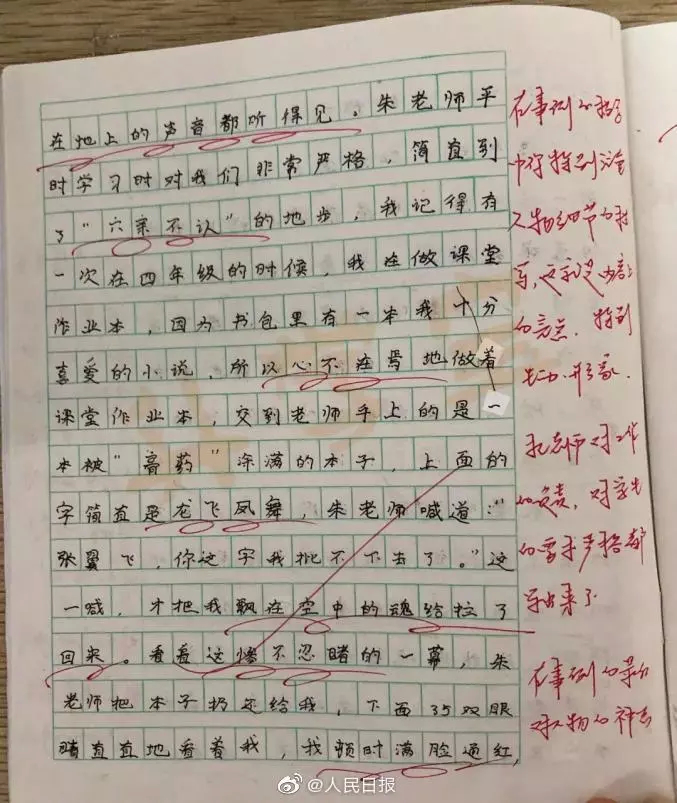 在地上的声音都听得见。朱老师平
时学习时对我们非常严格，简直到
了“六亲不认”的地步，我记得有
一次在四年级的时候，我在做课堂
作业本，因为书包里有一本我十分
喜爱的小说，所以心不在焉地做着
课堂作业本，交到老师手上的是一
本被“膏药”涂满的本子，上面的
字简直是龙飞凤舞，朱老师喊道：“
张翼飞，你这字我批不下去了。”这
一喊，才把我飘在空中的魂给拉了
回来。看着这惨不忍睹的一幕，朱
老师把本子扔还给我，下面35双眼
睛直直地看着我，我顿时满脸通红，
在事例的
中你特别注重
人物细节的
写，这就是内容上
的亮点，特别
生动形象。
把老师对工作
的负责，对学生
的要求严格都
写出来了
在事例的
对人物的神态
@人民日报